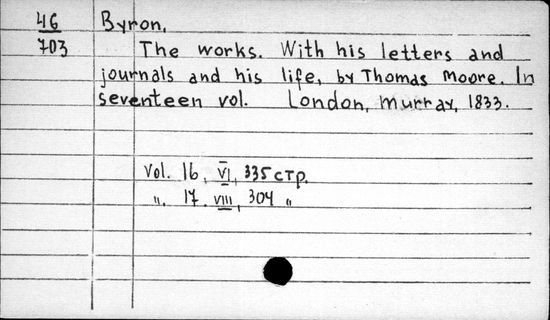 46 Byron.
703 The works. With his letters and
journals and his life, by Thomas Moore. In
seventeen vol. London, Murray, 1833.
Vol. 16, VI, 335 стр.
". 17. VIII, 304 "